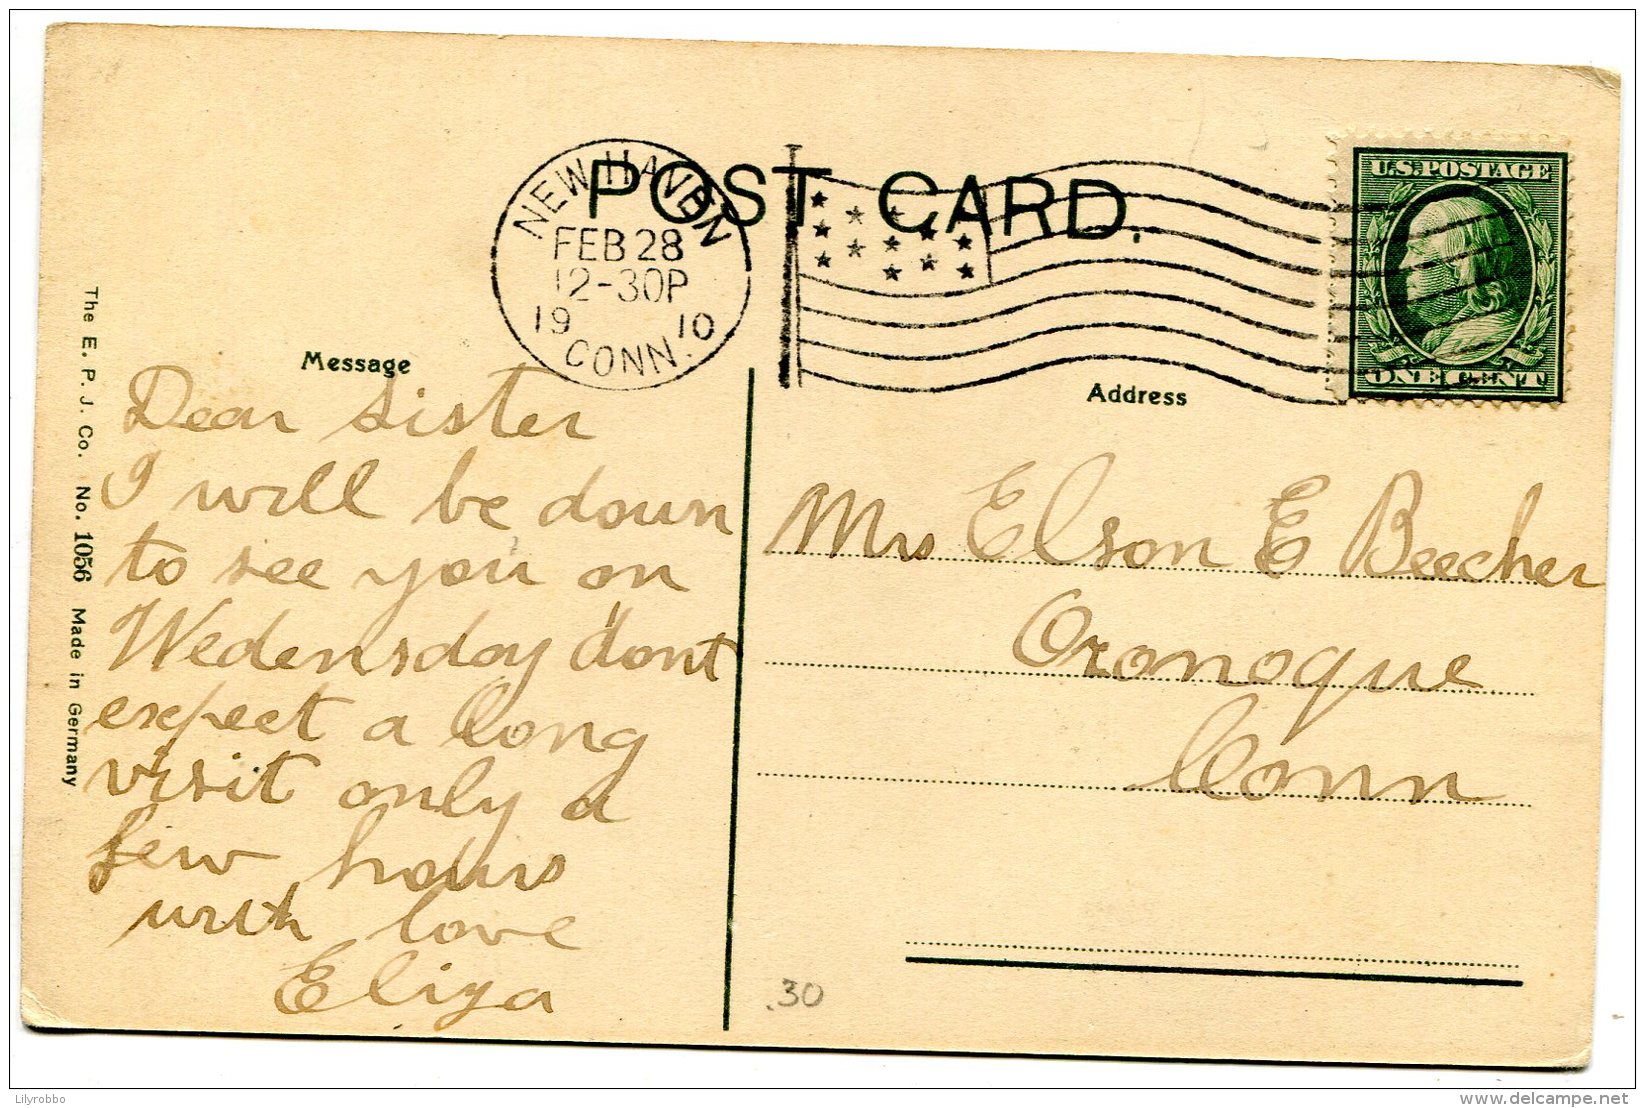 POST CARD.
NEW HAVEN
FEB 28
12-30P
19 10
CONN.
U.S. POSTAGE
ONE CENT
Message
Dear Sister
I will be down
to see you on
Wedensday dont
expect a long
visit only a
few hours
with love
Eliza
Address
Mrs Elson E Beecher
Oronoque
Conn
.30
The E. P. J. Co. No. 1056 Made in Germany
Lilyrobbo
delcampe.net